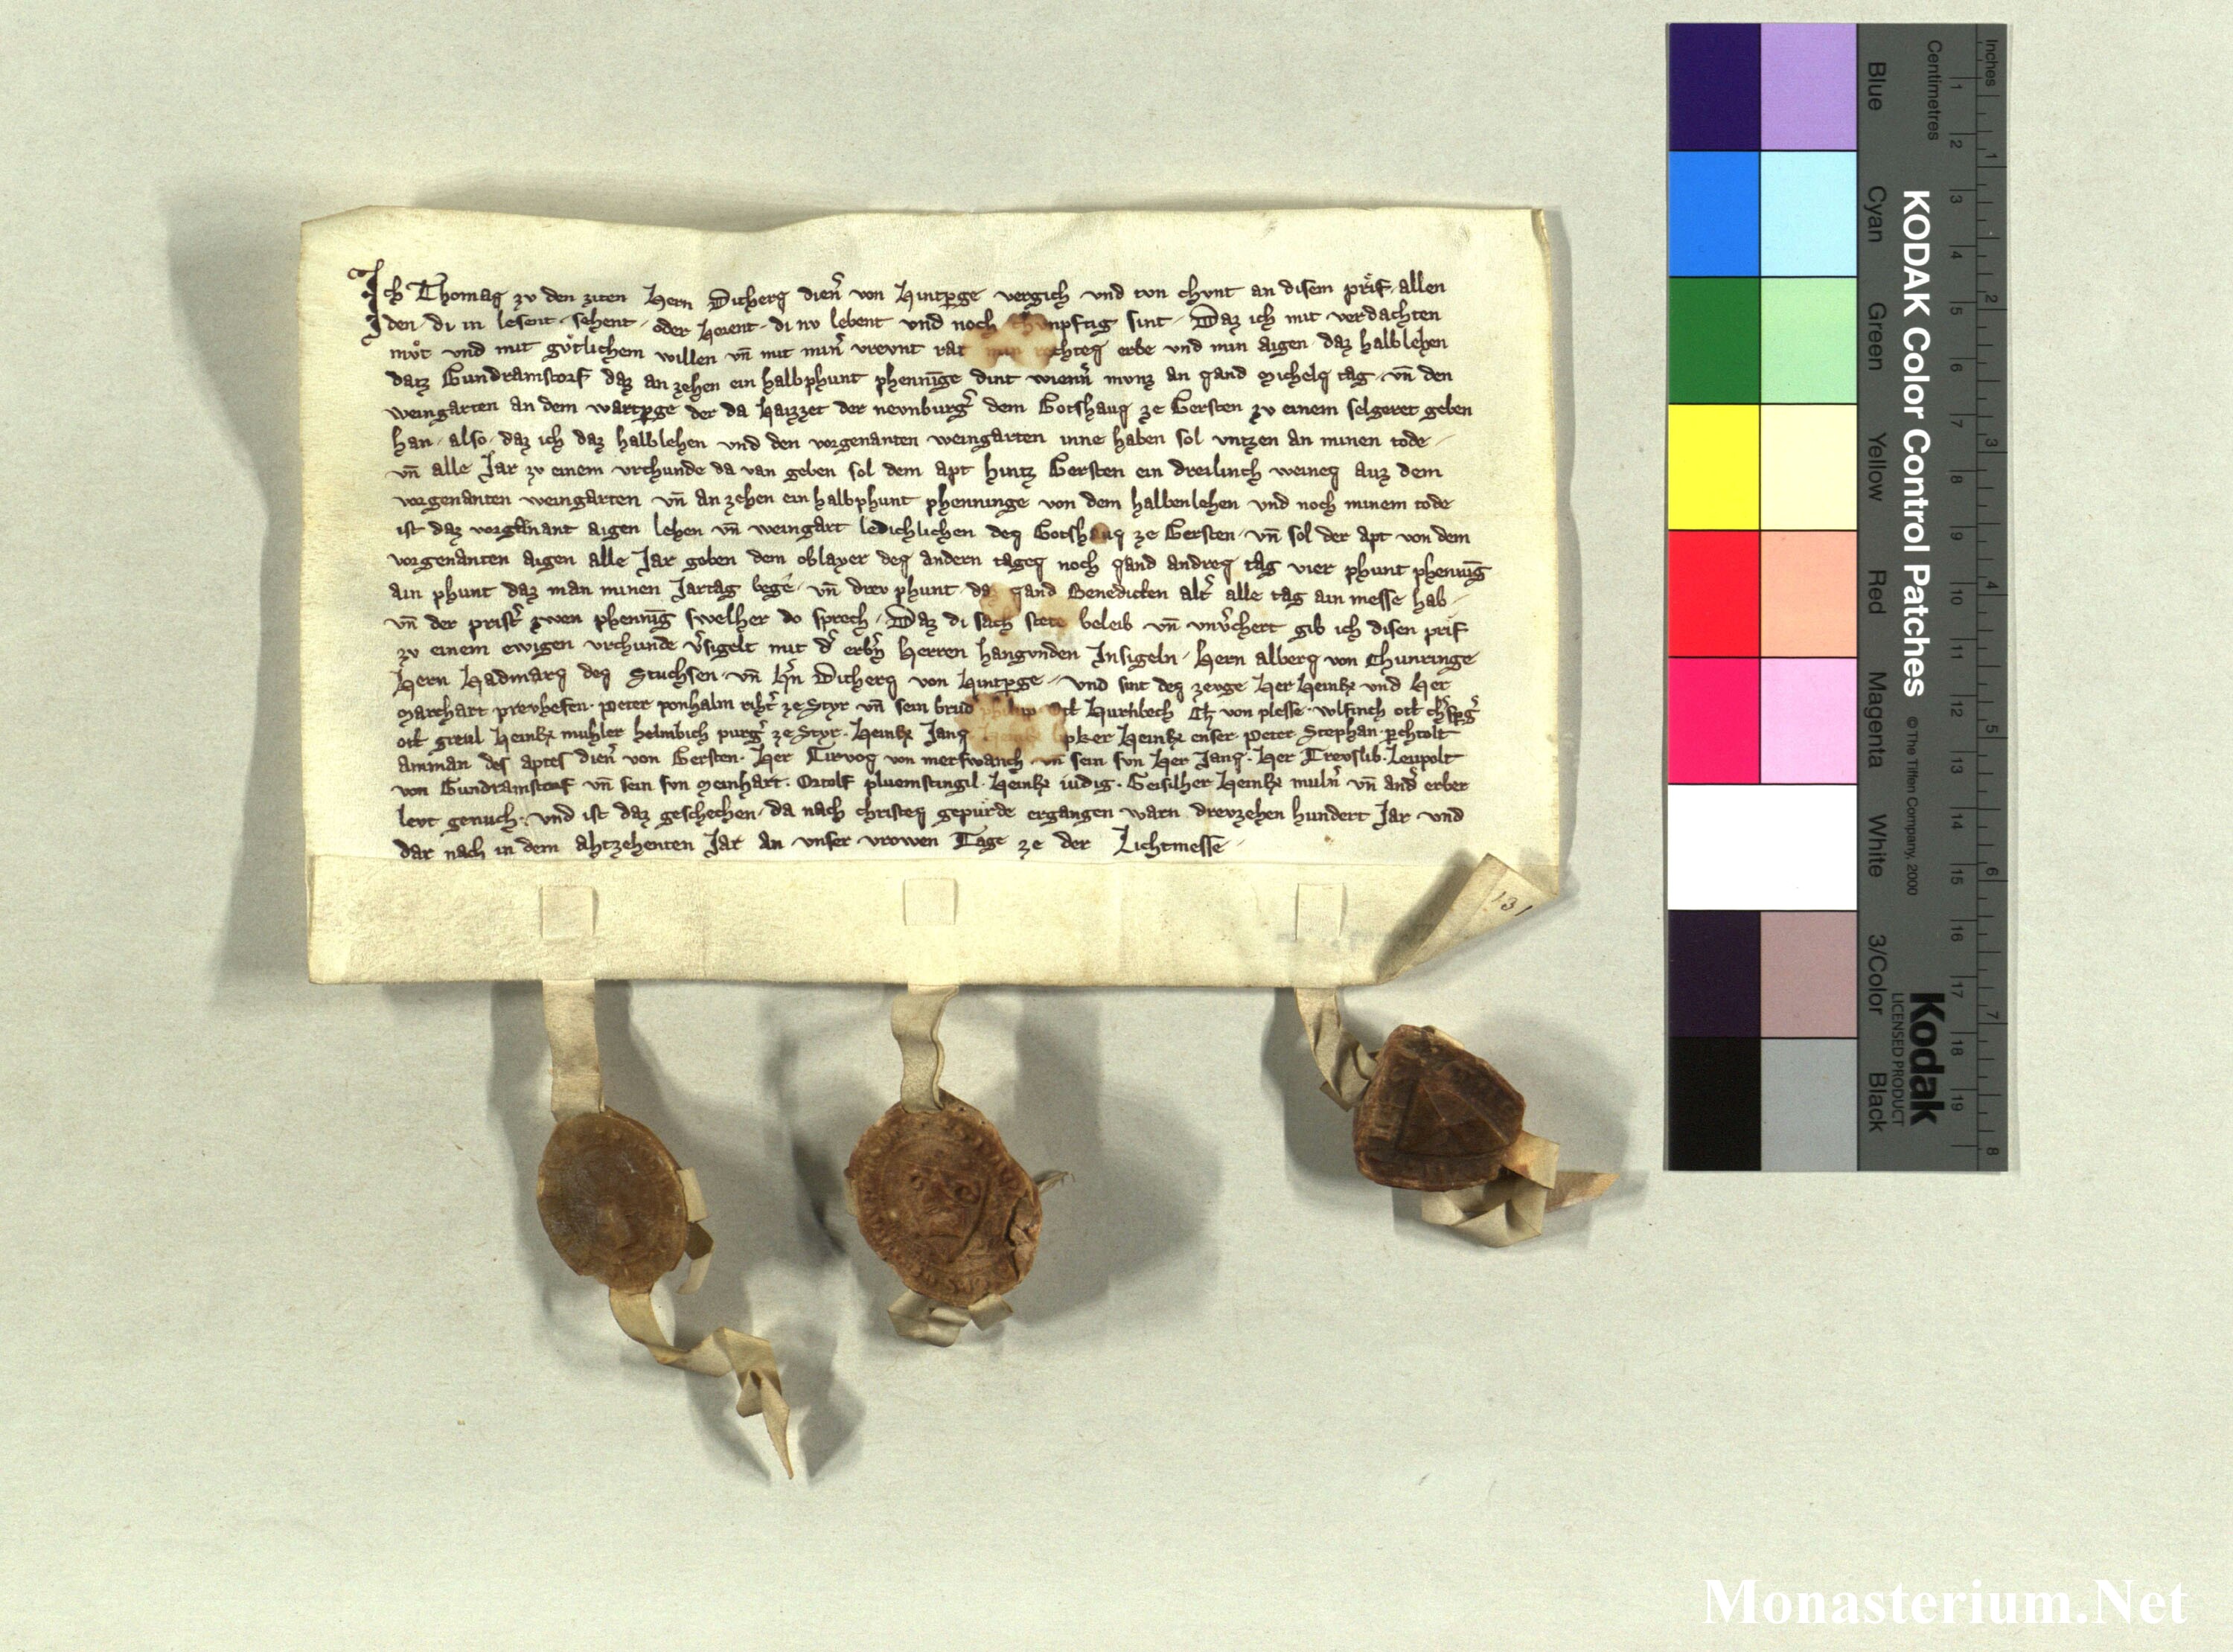 Ich Thomas zv den ziten Hern Dithers dien̄ von Hintp̱ge vergich vnd tvn chvnt an disem prif allen
den di in lesent sehent oder Herent di nv lebent vnd noch chvnpftig sint Daz ich mit verdachten
mv̊t vnd mit gv̊tlichem willen vn̄ mit min̄ vrevnt rat min rechtes erbe vnd min aigen daz halblehen
datz Gundramstorf daz an zehen ein halbphunt phennīge dint wienn̄ mvnz an sand Michels tag vn̄ den
weingarten an dem wartp̱ge der da haizzet der nevnburg̾ dem Gotshaus ze Gersten zv einem selgeret geben
han also daz ich daz halblehen vnd den vorgenanten weingarten inne haben sol vntzen an minen tode
vn̄ alle Jar zv einem vrchunde da van geben sol dem apt hintz Gersten ein dreilinch weines auz dem
vorgenanten weingarten vn̄ an zehen ein halbphunt phenninge von dem halbenlehen vnd noch minem tode
ist daz vorgenant aigen lehen vn̄ weingart ledichlichen des Gotshaus ze Gersten vn̄ sol der apt von dem
vorgenanten aigen alle Jar geben dem oblayer des andern tages noch sand andres tag vier phunt phennīg
ain phunt daz man minen Jartag bege vn̄ drev phunt daz sand Benedicten alt̾ alle tag ain messe hab
vn̄ der prist̾ zwen phennīg swelher do sprech Daz di sach stete beleib vn̄ vnv̾chert gib ich disen prif
zv einem ewigen vrchunde v̾sigelt mit d̾ erb̾n Herren hangvnden Insigeln Hern albers von Chunringe
Hern Hadmars des Stuchsen vn̄ H̾n Dithers von Hintp̱ge vnd sint des zevge Her Heinr̄ vnd Her
Marchart prevhefen peter ponhalm riht̾ ze Styr vn̄ sein brud̾ philip Ott Hurhbech von plesse wlfinch ott
ott greul Heinr̄ muhler helmbich purg̾ ze Styr Heinr̄ Jans Heinr̄ enser peter Stephan p̱chtolt
amman des aptes dien̄ von Gersten Her Tirvos von merswanch vn̄ sein svn Her Jans Her Trevslib Leupolt
von Gundramstorf vn̄ sein svn Meinhart Ortolf pluemstingil Heinr̄ iudig Geisilher Heinr̄ muln̄ vn̄ and̾ erber
levt genuch vnd ist daz geschechen da nach christes gepurde ergangen warn drevzehen hundert Jar vnd
dar nach in dem ahtzehenten Jar an vnser vrowen Tage ze der Lichtmesse
131
KODAK Color Control Patches © The Tiffen Company, 2000
Kodak
LICENSED PRODUCT
Blue Cyan Green Yellow Red Magenta White 3/Color Black
Inches 1 2 3 4 5 6 7 8
Centimetres 1 2 3 4 5 6 7 8 9 10 11 12 13 14 15 16 17 18 19
Monasterium.Net